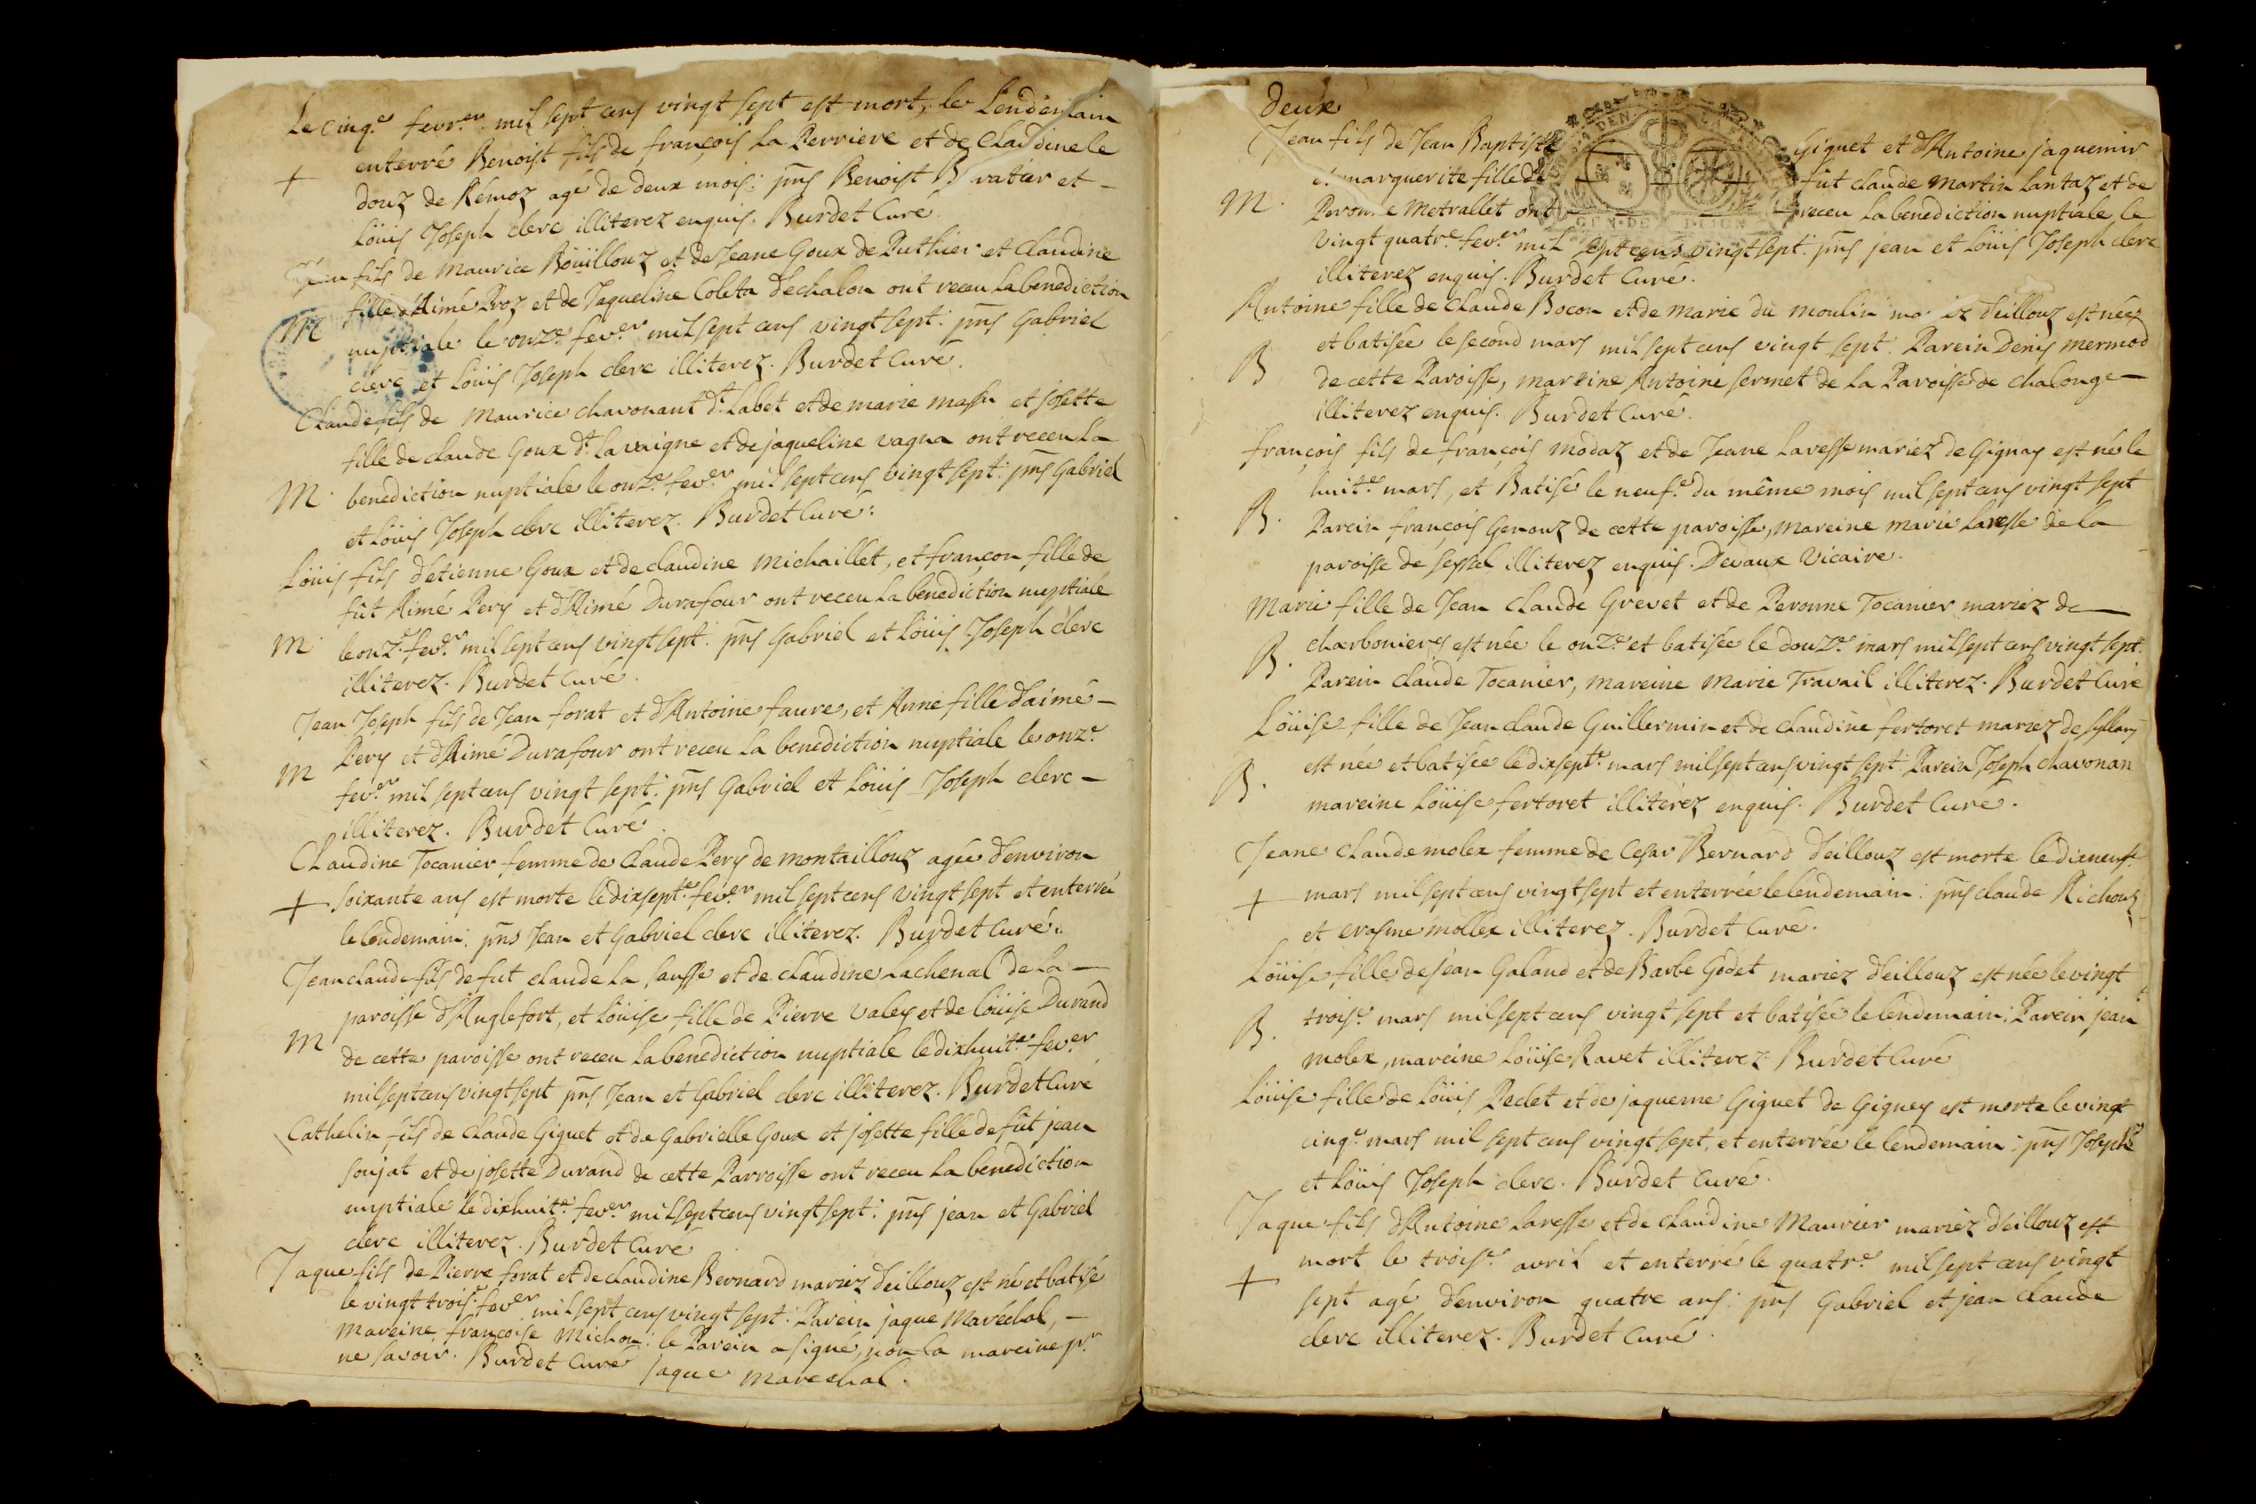 Le cinq.e fevr.er mil sept cens vingt sept est mort, le Lendemain
+ enterré Benoist fils de françois La Perriere et de Claudine le
douz de Rémoz agé de deux mois: pñs Benoist et
Loüis Joseph clerc illiterez enquis. Burdet Curé.
Jean fils de Maurice Boüillouz et de Jeane Goux de Puthier et Claudine
fille d'Aimé Proz et de Jaqueline Coleta dechalon ont receu La benediction
M nuptiale le onz.e fev.er mil sept cens vingt sept: pñs Gabriel
clerc et Loüis Joseph clerc illiterez. Burdet Curé.
Claude fils de Maurice chavonant d.t Labet et de marie et josette
fille de claude Goux d.t La vaigne et de jaqueline vagna ont receu La
M. benediction nuptiale le onz.e fev.er mil sept cens vingt sept: pñs Gabriel
et Loüis Joseph clerc illiterez. Burdet Curé.
Loüis fils d'etienne Goux et de claudine Michaillet, et françon fille de
fût Aimé Pery et d'Aimé Durafour ont receu La benediction nuptiale
M. le onz.e fev.er mil sept cens vingt sept: pñs Gabriel et Loüis Joseph clerc
illiterez. Burdet Curé.
Jean Joseph fils de Jean forat et d'Antoine faure, et Anne fille d'aimé
M Pery et d'Aimé Durafour ont receu La benediction nuptiale le onz.e
fev.er mil sept cens vingt sept: pñs Gabriel et Loüis Joseph clerc
illiterez. Burdet Curé.
Claudine Tocanier femme de Claude Pery de montaillouz agée d'environ
+ soixante ans est morte le dixsept.e fev.er mil sept cens vingt sept et enterrée
le lendemain: pñs Jean et Gabriel clerc illiterez. Burdet Curé.
Jean claude fils de fut claude La sausse et de claudine Lachenal de La
paroisse d'Anglefort, et Loüise fille de Pierre Valey et de Loüise Durand
M de cette paroisse ont receu La benediction nuptiale le dixhuit.e fev.er
mil sept cens vingt sept pñs Jean et Gabriel clerc illiterez. Burdet Curé
Cathelin fils de Claude Giguet et de Gabrielle Goux et josette fille de fût jean
sonjat et de josette Durand de cette Parroisse ont receu La benediction
nuptiale le dixhuit.e fev.er mil sept cens vingt sept: pñs jean et Gabriel
clerc illiterez. Burdet Curé
Jaque fils de Pierre forat et de claudine Bernard mariez d'eillouz est né et batisé
le vingt trois.e fev.er mil sept cens vingt sept: Parein jaque Maréchal,
Mareine françoise Michon: le Parein a signé, non La mareine p.r
ne savoir. Burdet Curé jaque marechal.
deux
Jean fils de Jean Baptiste Giguet et d'Antoine jaquemir
et marguerite fille de fût claude Martin Lantaz et de
M. Peronne Metrallet ont receu La benediction nuptiale le
vingt quatr.e fev.er mil sept cens vingt sept: pñs jean et Loüis Joseph clerc
illiterez enquis. Burdet Curé.
Antoine fille de Claude Bocon et de Marie du Moulin d'eillouz est née
et batisée le second mars mil sept cens vingt sept. Parein Denis mermod
B de cette Paroisse, mareine Antoine sermet de La Paroisse de chalonge
illiterez enquis. Burdet Curé.
françois fils de françois Modaz et de Jeane Lavesse mariez de Gignay est né le
huit.e mars, et Batisé le neuf.e du même mois mil sept cens vingt sept
B. Parein françois Genouz de cette paroisse, mareine marie Lavesse de La
paroisse de seyssel illiterez enquis. Devaux Vicaire.
Marie fille de Jean Claude Grevet et de Peronne Tocanier mariez de
charbonieres est née le onz.e et batisée le douz.e mars mil sept cens vingt sept.
B. Parein claude Tocanier, mareine Marie Travail illiterez. Burdet Curé
Loüise fille de Jean claude Guillermin et de claudine fertoret mariez de
est née et batisée le dixsept.e mars mil sept cens vingt sept: Parein Joseph chavonan
B. mareine Loüise fertoret illiterez enquis. Burdet Curé.
Jeane claude molex femme de Cesar Bernard d'eillouz est morte le dixneuf.e
+ mars mil sept cens vingt sept et enterrée le lendemain: pñs claude Richouz
et erasme mollex illiterez. Burdet Curé.
Loüise fille de jean Galand et de Barbe Godet mariez d'eillouz est née le vingt
B. trois.e mars mil sept cens vingt sept et batisée le lendemain: Parein jean
molex, mareine Loüise Ravet illiterez Burdet Curé
Loüise fille de Loüis Peclet et de jaqueme Giguet de Gigney est morte le vingt
cinq.e mars mil sept cens vingt sept, et enterrée le lendemain: pñs Joseph
et Loüis Joseph clerc. Burdet Curé.
Jaque fils d'Antoine Lavesse et de claudine Maurier mariez d'eillouz est
mort le trois.e avril et enterré le quatr.e mil sept cens vingt
+ sept agé d'environ quatre ans: pñs Gabriel et jean claude
clerc illiterez. Burdet Curé.